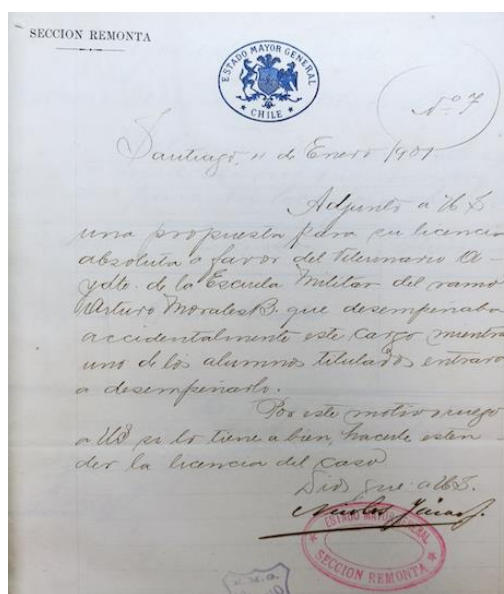 SECCION REMONTA
ESTADO MAYOR GENERAL
CHILE
Nº 7
Santiago, 11 de Enero 1901
Adjunto a US
una propuesta para su licencia
absoluta a favor del Veterinario A-
ydte. de la Escuela Militar del ramo
Arturo Morales B. que desempeñaba
accidentalmente este cargo mientra
uno de los alumnos titulados entrara
a desempeñarlo.
Por este motivo ruego
a US si lo tiene a bien, hacerle esten
der la licencia del caso
Dios gue. a US.
Nicolas
ESTADO MAYOR GENERAL
SECCION REMONTA